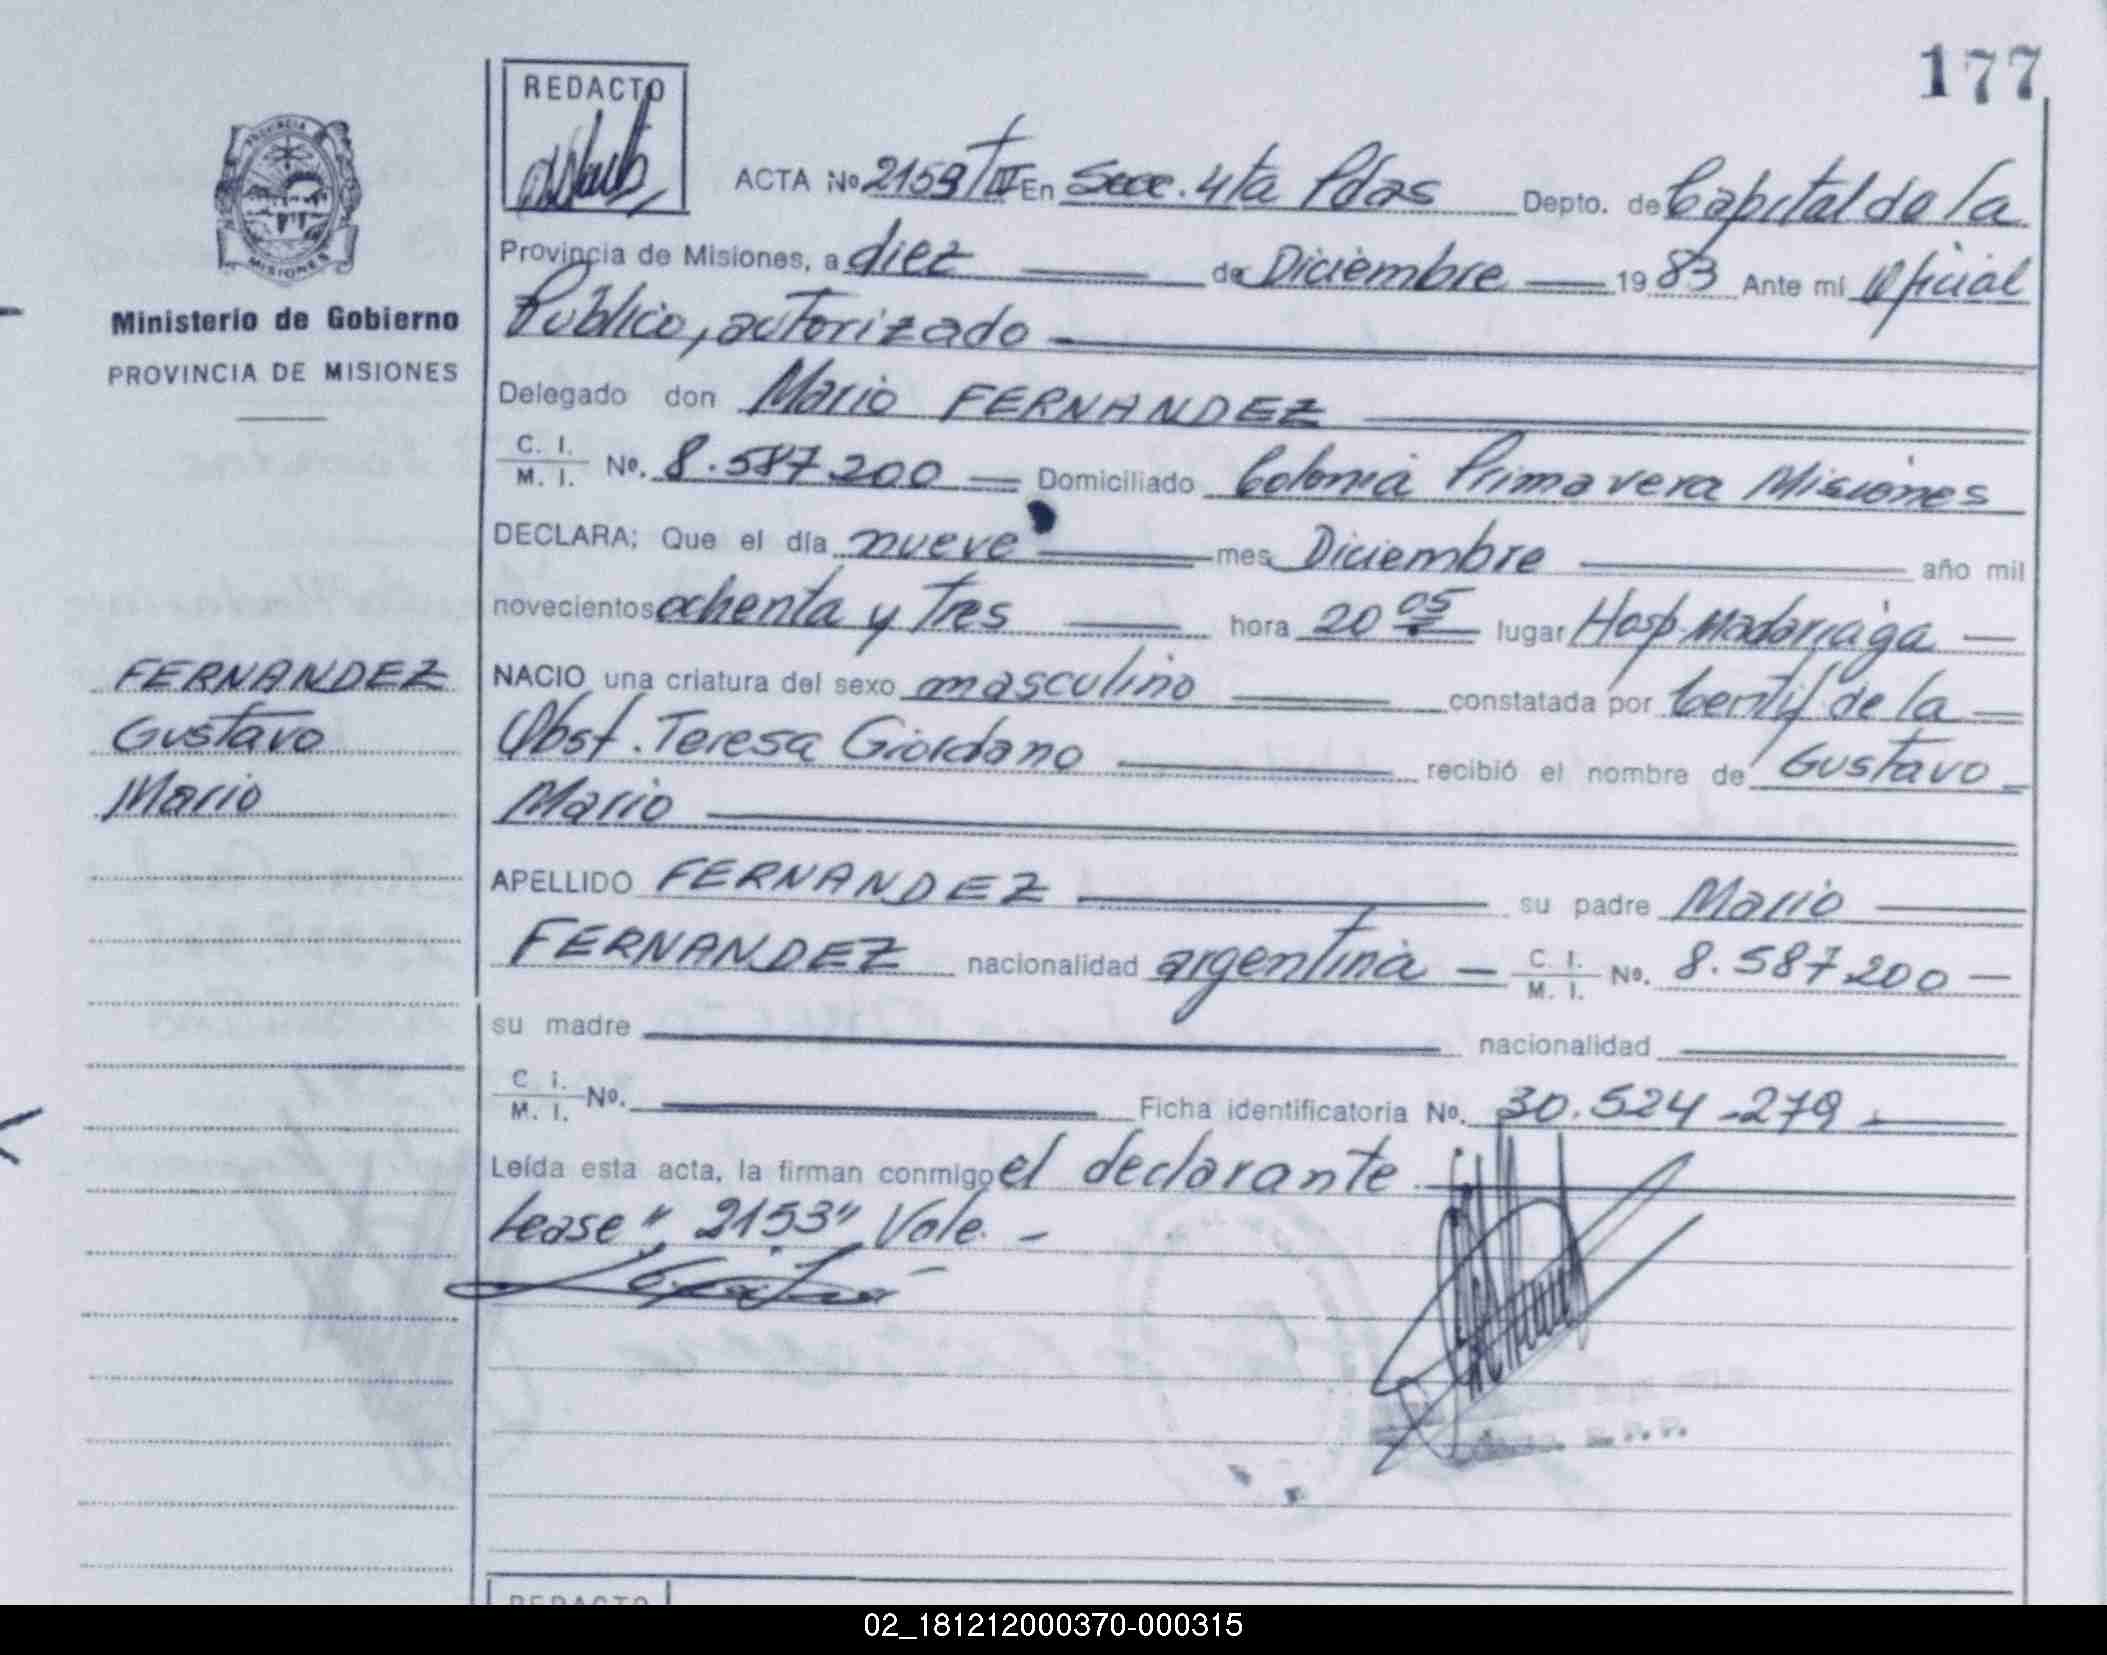 177
REDACTO
PROVINCIA
MISIONES
Ministerio de Gobierno
PROVINCIA DE MISIONES
ACTA Nº 2159 TIII En Secc. 4ta Pdas Depto. de Capital de la
Provincia de Misiones, a diez de Diciembre 1983 Ante mi Oficial
Público, autorizado
Delegado don Mario FERNANDEZ
C. I. / M. I. Nº. 8.587.200 Domiciliado Colonia Primavera Misiones
DECLARA: Que el día nueve mes Diciembre año mil
novecientos ochenta y Tres hora 20 05 lugar Hosp. Madariaga
NACIO una criatura del sexo masculino constatada por Certif de la
Obst. Teresa Giordano recibió el nombre de Gustavo
Mario
APELLIDO FERNANDEZ su padre Mario
FERNANDEZ nacionalidad argentina C. I. / M. I. Nº. 8.587.200
su madre nacionalidad
C. i. / M. I. Nº. Ficha identificatoria Nº. 30.524-279
Leída esta acta, la firman conmigo el declarante
Lease " 2153" Vale. -
FERNANDEZ
Gustavo
Mario
REDACTO
02_181212000370-000315